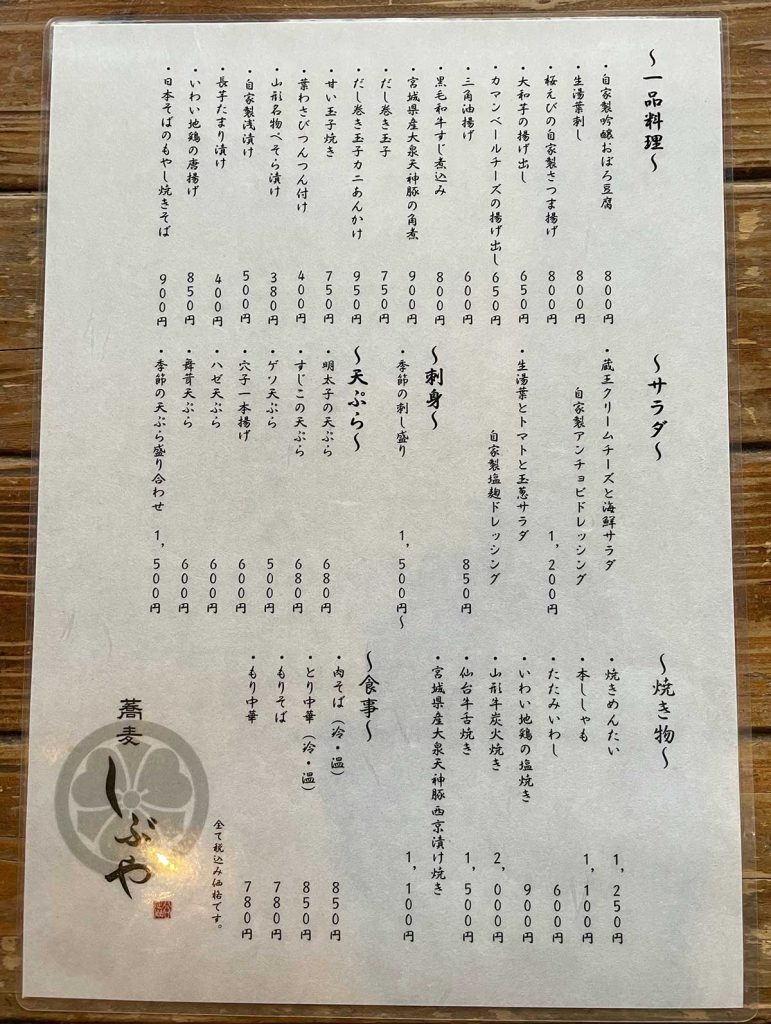 ～一品料理～
・自家製吟醸おぼろ豆腐 800円
・生湯葉刺し 800円
・桜えびの自家製さつま揚げ 800円
・大和芋の揚げ出し 650円
・カマンベールチーズの揚げ出し 650円
・三角油揚げ 600円
・黒毛和牛すじ煮込み 800円
・宮城県産大泉天神豚の角煮 900円
・だし巻き玉子 750円
・だし巻き玉子カニあんかけ 950円
・甘い玉子焼き 750円
・葉わさびつんつん付け 400円
・山形名物ぺそら漬け 380円
・自家製浅漬け 500円
・長芋たまり漬け 400円
・いわい地鶏の唐揚げ 850円
・日本そばのもやし焼きそば 900円
～サラダ～
・蔵王クリームチーズと海鮮サラダ
自家製アンチョビドレッシング
1,200円
・生湯葉とトマトと玉葱サラダ
自家製塩麹ドレッシング
850円
～刺身～
・季節の刺し盛り 1,500円～
～天ぷら～
・明太子の天ぷら 680円
・すじこの天ぷら 680円
・ゲソ天ぷら 500円
・穴子一本揚げ 600円
・ハゼ天ぷら 600円
・舞茸天ぷら 600円
・季節の天ぷら盛り合わせ 1,500円
～焼き物～
・焼きめんたい 1,250円
・本ししゃも 1,100円
・たたみいわし 600円
・いわい地鶏の塩焼き 900円
・山形牛炭火焼き 2,000円
・仙台牛舌焼き 1,500円
・宮城県産大泉天神豚西京漬け焼き
1,100円
～食事～
・肉そば（冷・温） 850円
・とり中華（冷・温） 850円
・もりそば 780円
・もり中華 780円
全て税込み価格です。
蕎麦 しぶや